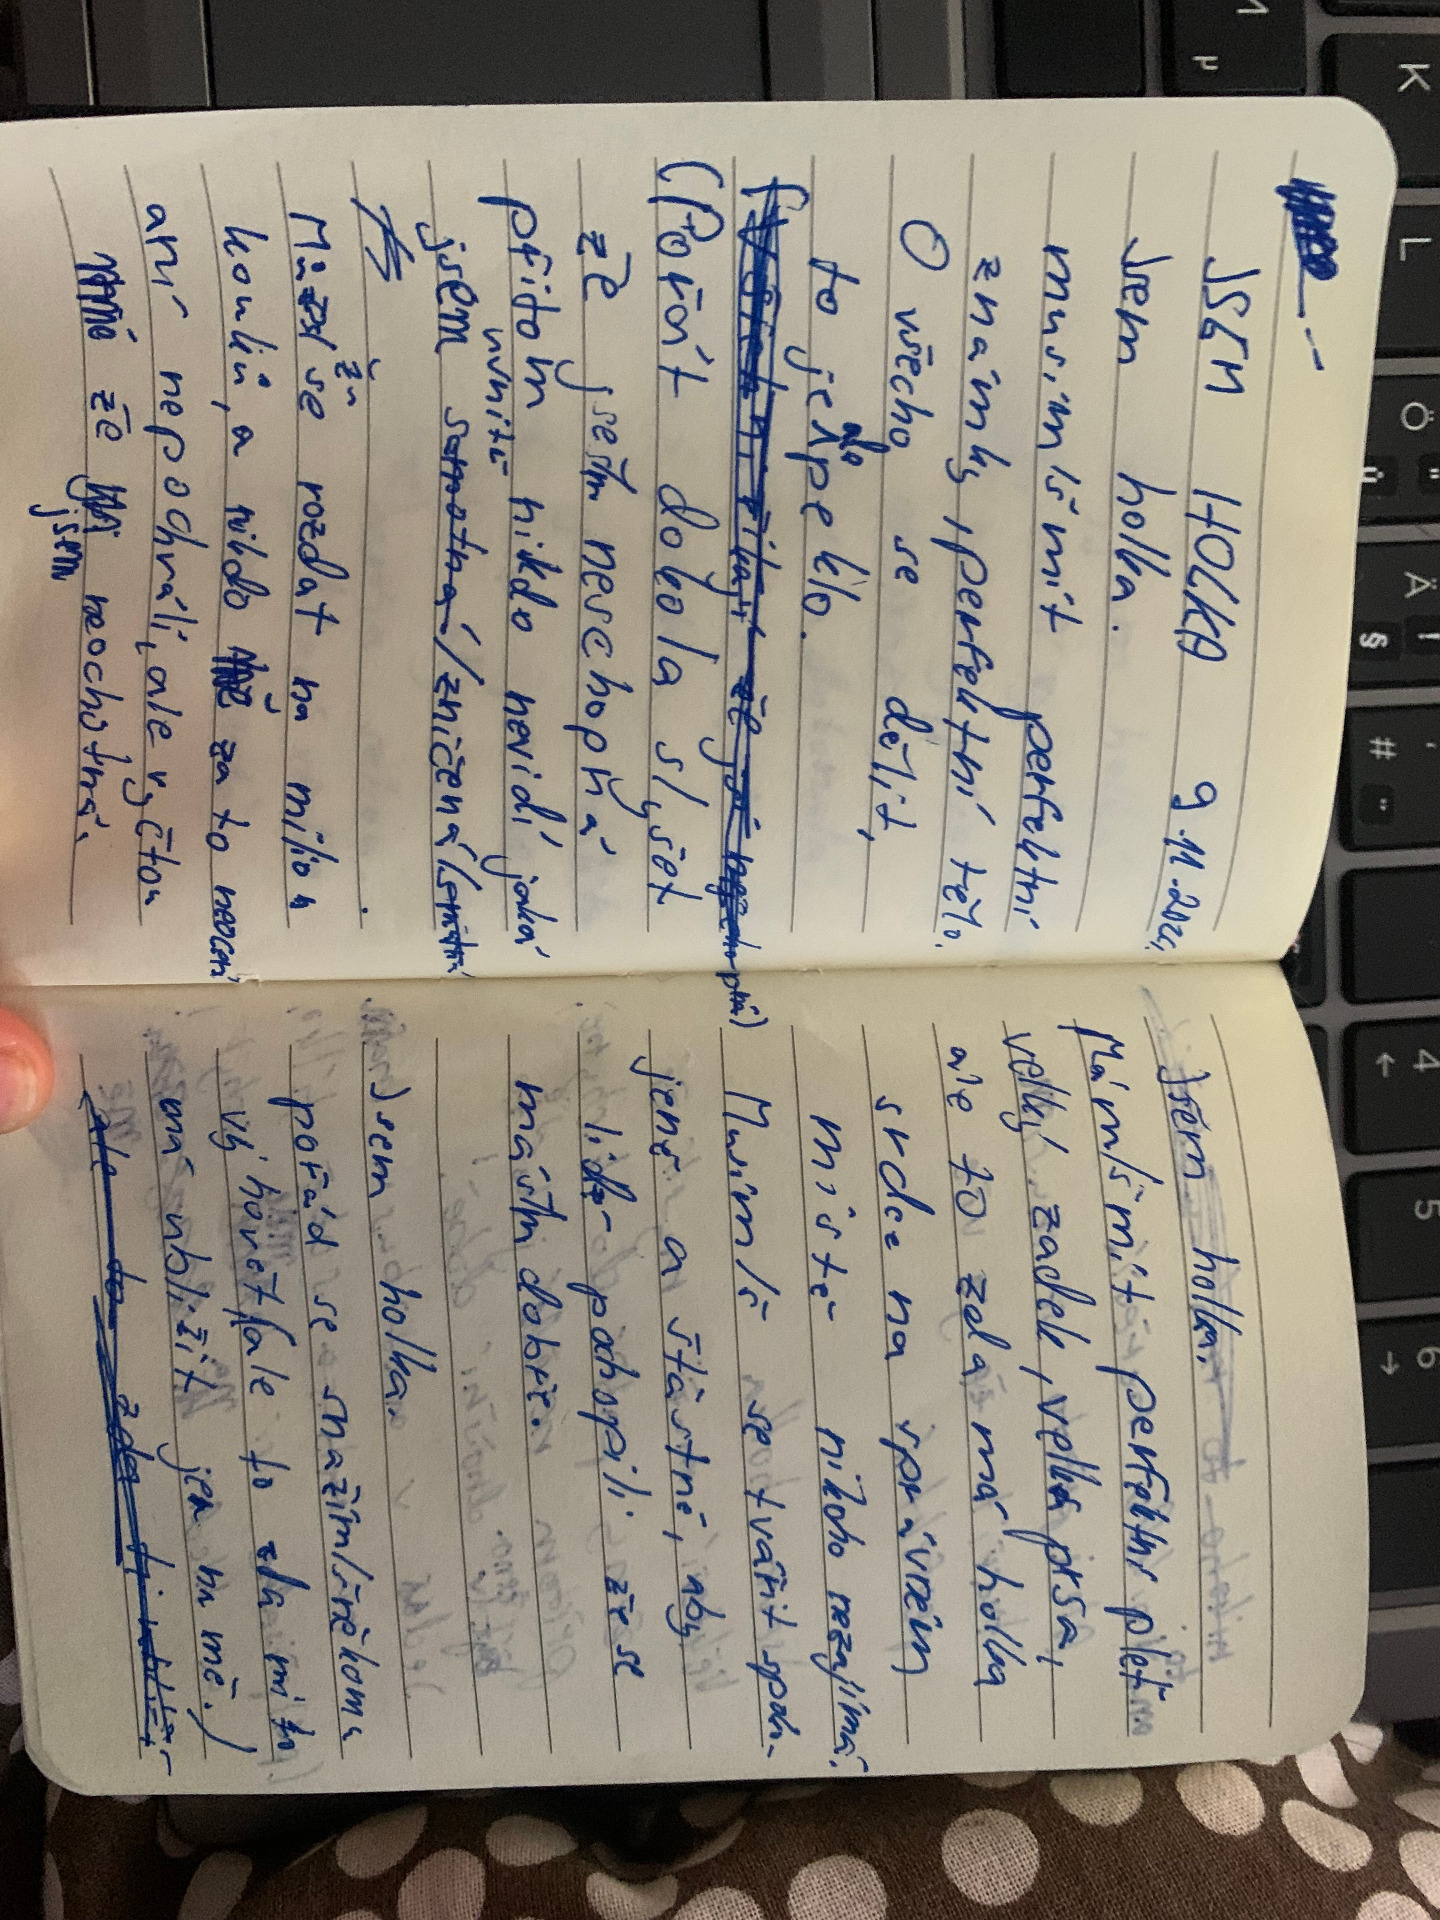 JSEM HOLKA 9.11.202
Jsem holka.
musím/š mít perfektní
známky, perfektní tělo.
O všecho se dělit,
to je peklo.
(Pořát dokola slyšet
že jsem neschopná
přitom nikdo nevidí jaká
uvnitř
jsem samotná/zničená
Můžu se rozdat na milion
kousků, a nikdo mě za to neocení
ani nepochválí, ale vyčtou
mě že jsem neochotná.
Jsem holka.
Mám/š mít perfektní pleť.
velký zadek, velká prsa,
ale to zda má holka
srdce na správném
místě nikoho nezajímá.
Musím/š se tvářit spoko-
jeně a šťastně, aby
lidi pochopili že se
mám dobře.
Jsem holka.
pořád se snažím/š někomu
vyhovět (ale to zda mi to
má ublížit jen na mě.)